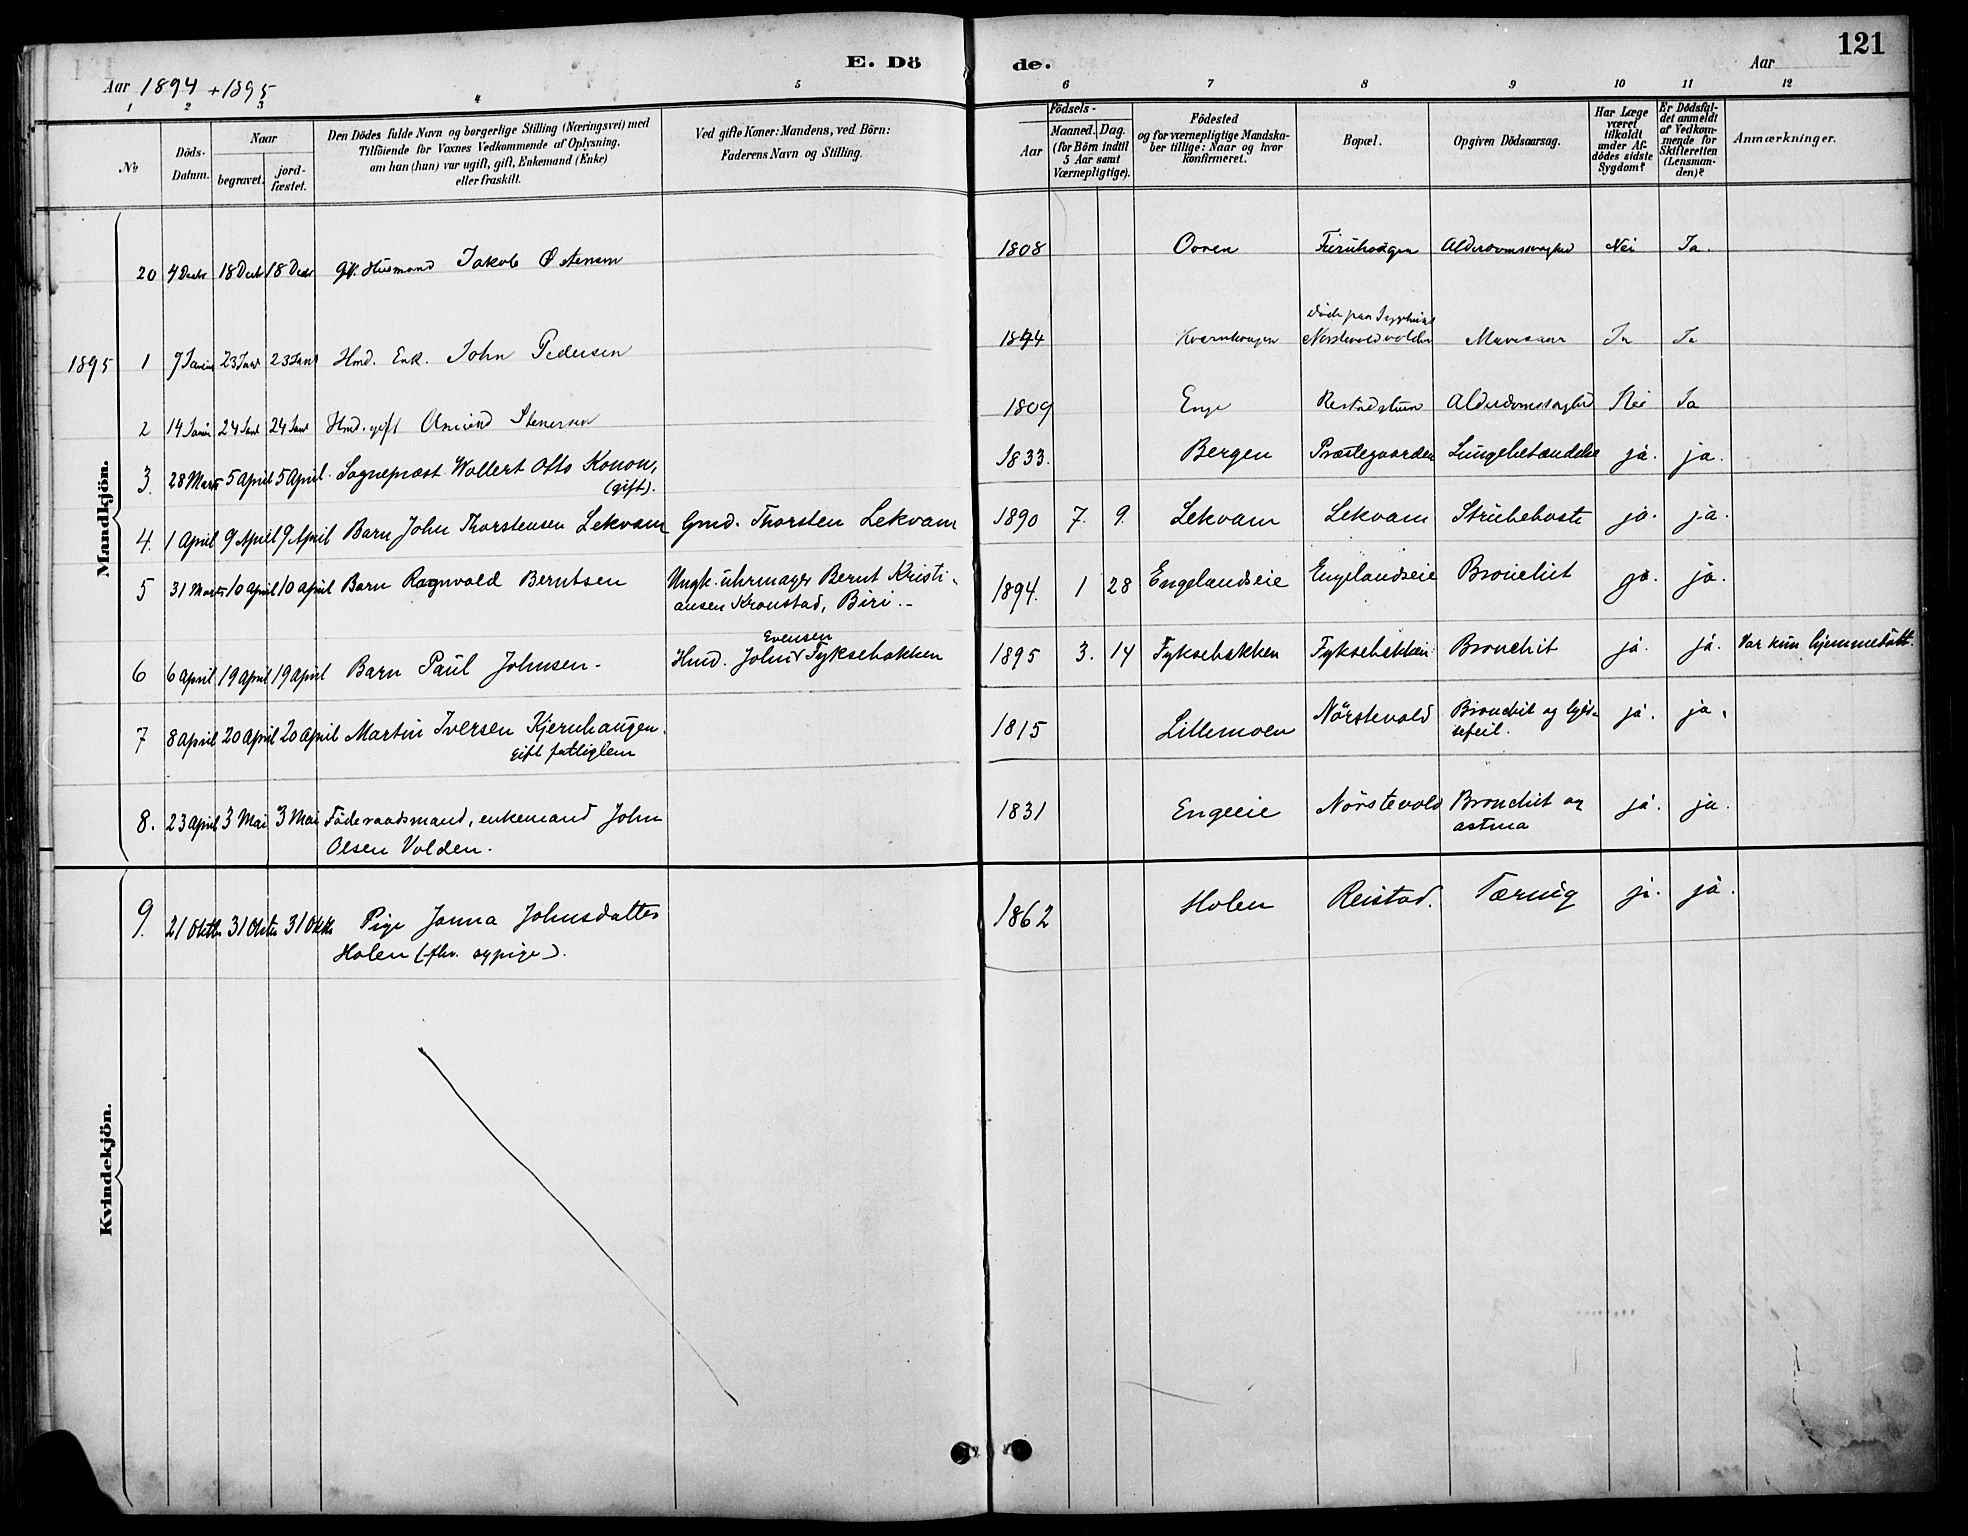 121
E. Dö de.
Aar 1894 + 1895
Aar
1 2 3 4 5 6 7 8 9 10 11 12
No
Döds-Datum.
Naar
begravet.
jord-fæstet.
Den Dödes fulde Navn og borgerlige Stilling (Næringsvei) med
Tilföiende for Voxnes Vedkommende af Oplysning,
om han (hun) var ugift, gift, Enkemand (Enke)
eller fraskilt.
Ved gifte Koner: Mandens, ved Börn:
Faderens Navn og Stilling.
Födsels-
Aar
Maaned. Dag.
(for Börn indtil
5 Aar samt
Værnepligtige).
Födested
og for værnepligtige Mandska-
ber tillige: Naar og hvor
konfirmeret.
Bopæl.
Opgiven Dödsaarsag.
Har Læge
været
tilkaldt
under Af-
dödes sidste
Sygdom?
Er Dödsfal-
det anmeldt
af Vedkom-
mende for
Skifteretten
(Lensman-
den)?
Anmærkninger.
Mandkjön.
20 4 Decbr 18 Decbr 18 Decbr Gift Husmand Jakob Østensen 1808 Ooren Alderdomssvaghed Nei Ja.
1895 1 9 Januar 23 Janr 23 Janr Hmd. Enk. John Pedersen Kvernhaugen Mavesaar Ja Ja
2 14 Januar 24 Janr 24 Janr Hmd. gift Amund Stenersen 1809 Enge Alderdomssvaghed Nei Ja
3. 28 Marts 5 April 5 April. Sognepræst Wollert Otto Konow, 1833. Bergen Præstegaarden Lungebetændelse ja. ja.
(gift).
4. 1 April 9 April 9 April Barn John Thorstensen Lekvam Gmd. Thorsten Lekvam 1890 7. 9. Lekvam Lekvam Strubehoste ja. ja.
5 31 Marts 10 April 10 April Barn Ragnvald Berntsen Ungk. uhrmager Bernt Kristi- 1894. 1 28 Engelandseie Engelandseie Bronchit ja. ja.
ansen Kronstad, Biri.-
Evensen
6 6 April 19 April 19 April Barn Paul Johnsen- Hmd. John Fyksebakken 1895 3. 14 Fyksebakken Fyksebakken Bronchit ja. ja. Var kun hjemmedöbt.
7 8 April 20 April 20 April Martin Iversen Kjernhaugen. 1815 Lillemoen Nörstevold Bronchit og hjer-
gift fattiglem tefeil. ja. ja.
8. 23 April 3 Mai 3 Mai Föderaadsmand, enkemand John 1831 Engeeie Nörstevold Bronchit og ja. ja.
Olsen Volden. astma
Kvindekjön.
9. 21 Oktbr 31 Oktbr 31 Oktbr Pige Janna Johnsdatter 1862 Holen Reistad. Tæring ja. ja.
Holen (fhv. sypige).